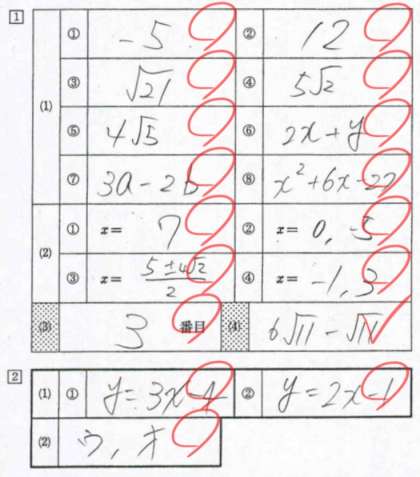 1
(1) ① -5 ② 12
③ √21 ④ 5√2
⑤ 4√5 ⑥ 2x+y
⑦ 3a-2b ⑧ x²+6x-27
(2) ① x= 7 ② x= 0, -5
③ x= (5±4√2)/2 ④ x= -1, 3
(3) 3 番目 (4) 6√11-√11
2
(1) ① y=3x-4 ② y=2x-1
(2) ウ, オ